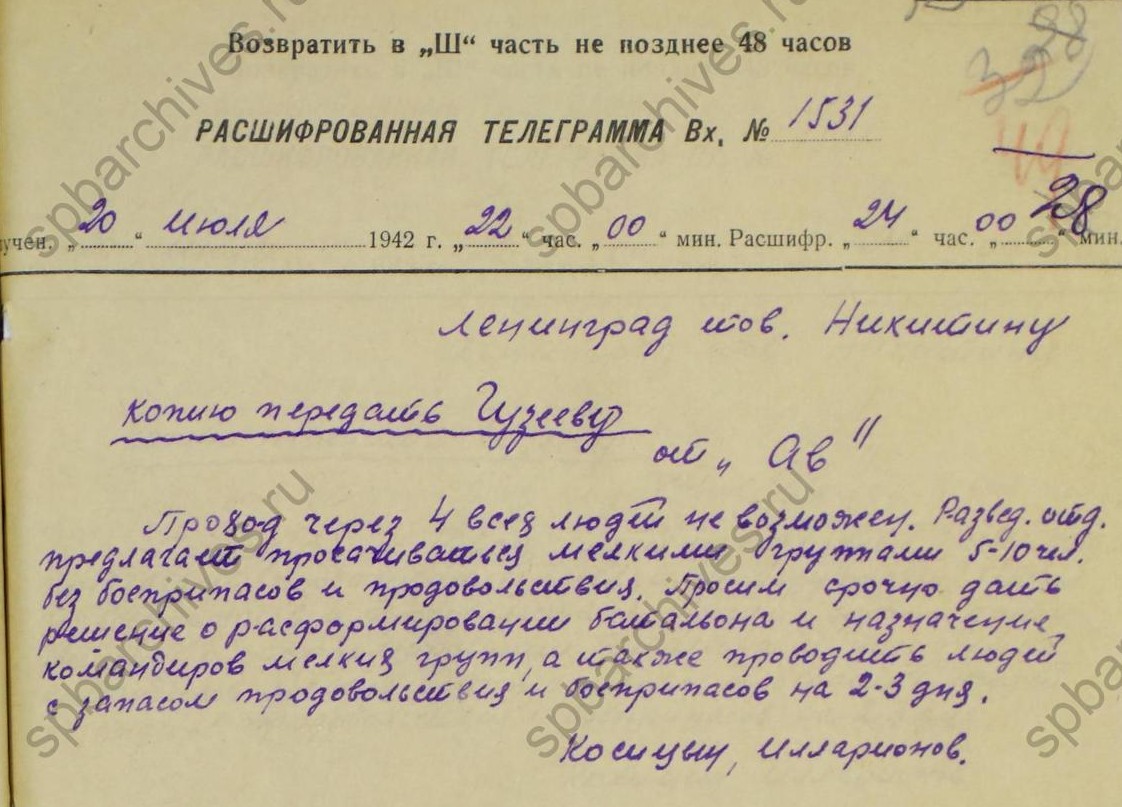 Возвратить в „Ш“ часть не позднее 48 часов
РАСШИФРОВАННАЯ ТЕЛЕГРАММА Вх. № 1531
28
32
49
28
учен. „20“ июля 1942 г. „22“ час. „00“ мин. Расшифр. „24“ час. „00“ мин.
Ленинград тов. Никитину
копию передать Гузееву
от „Ав“
Проход через 4 всех людей не возможен. Развед. отд.
предлагает просачиваться мелкими группами 5-10 чел.
без боеприпасов и продовольствия. Просим срочно дать
решение о расформировании батальона и назначение
командиров мелких групп, а также проводить людей
с запасом продовольствия и боеприпасов на 2-3 дня.
Косицын, Илларионов.
spbarchives.ru
spbarchives.ru
spbarchives.ru
spbarchives.ru
spbarchives.ru
spbarchives.ru